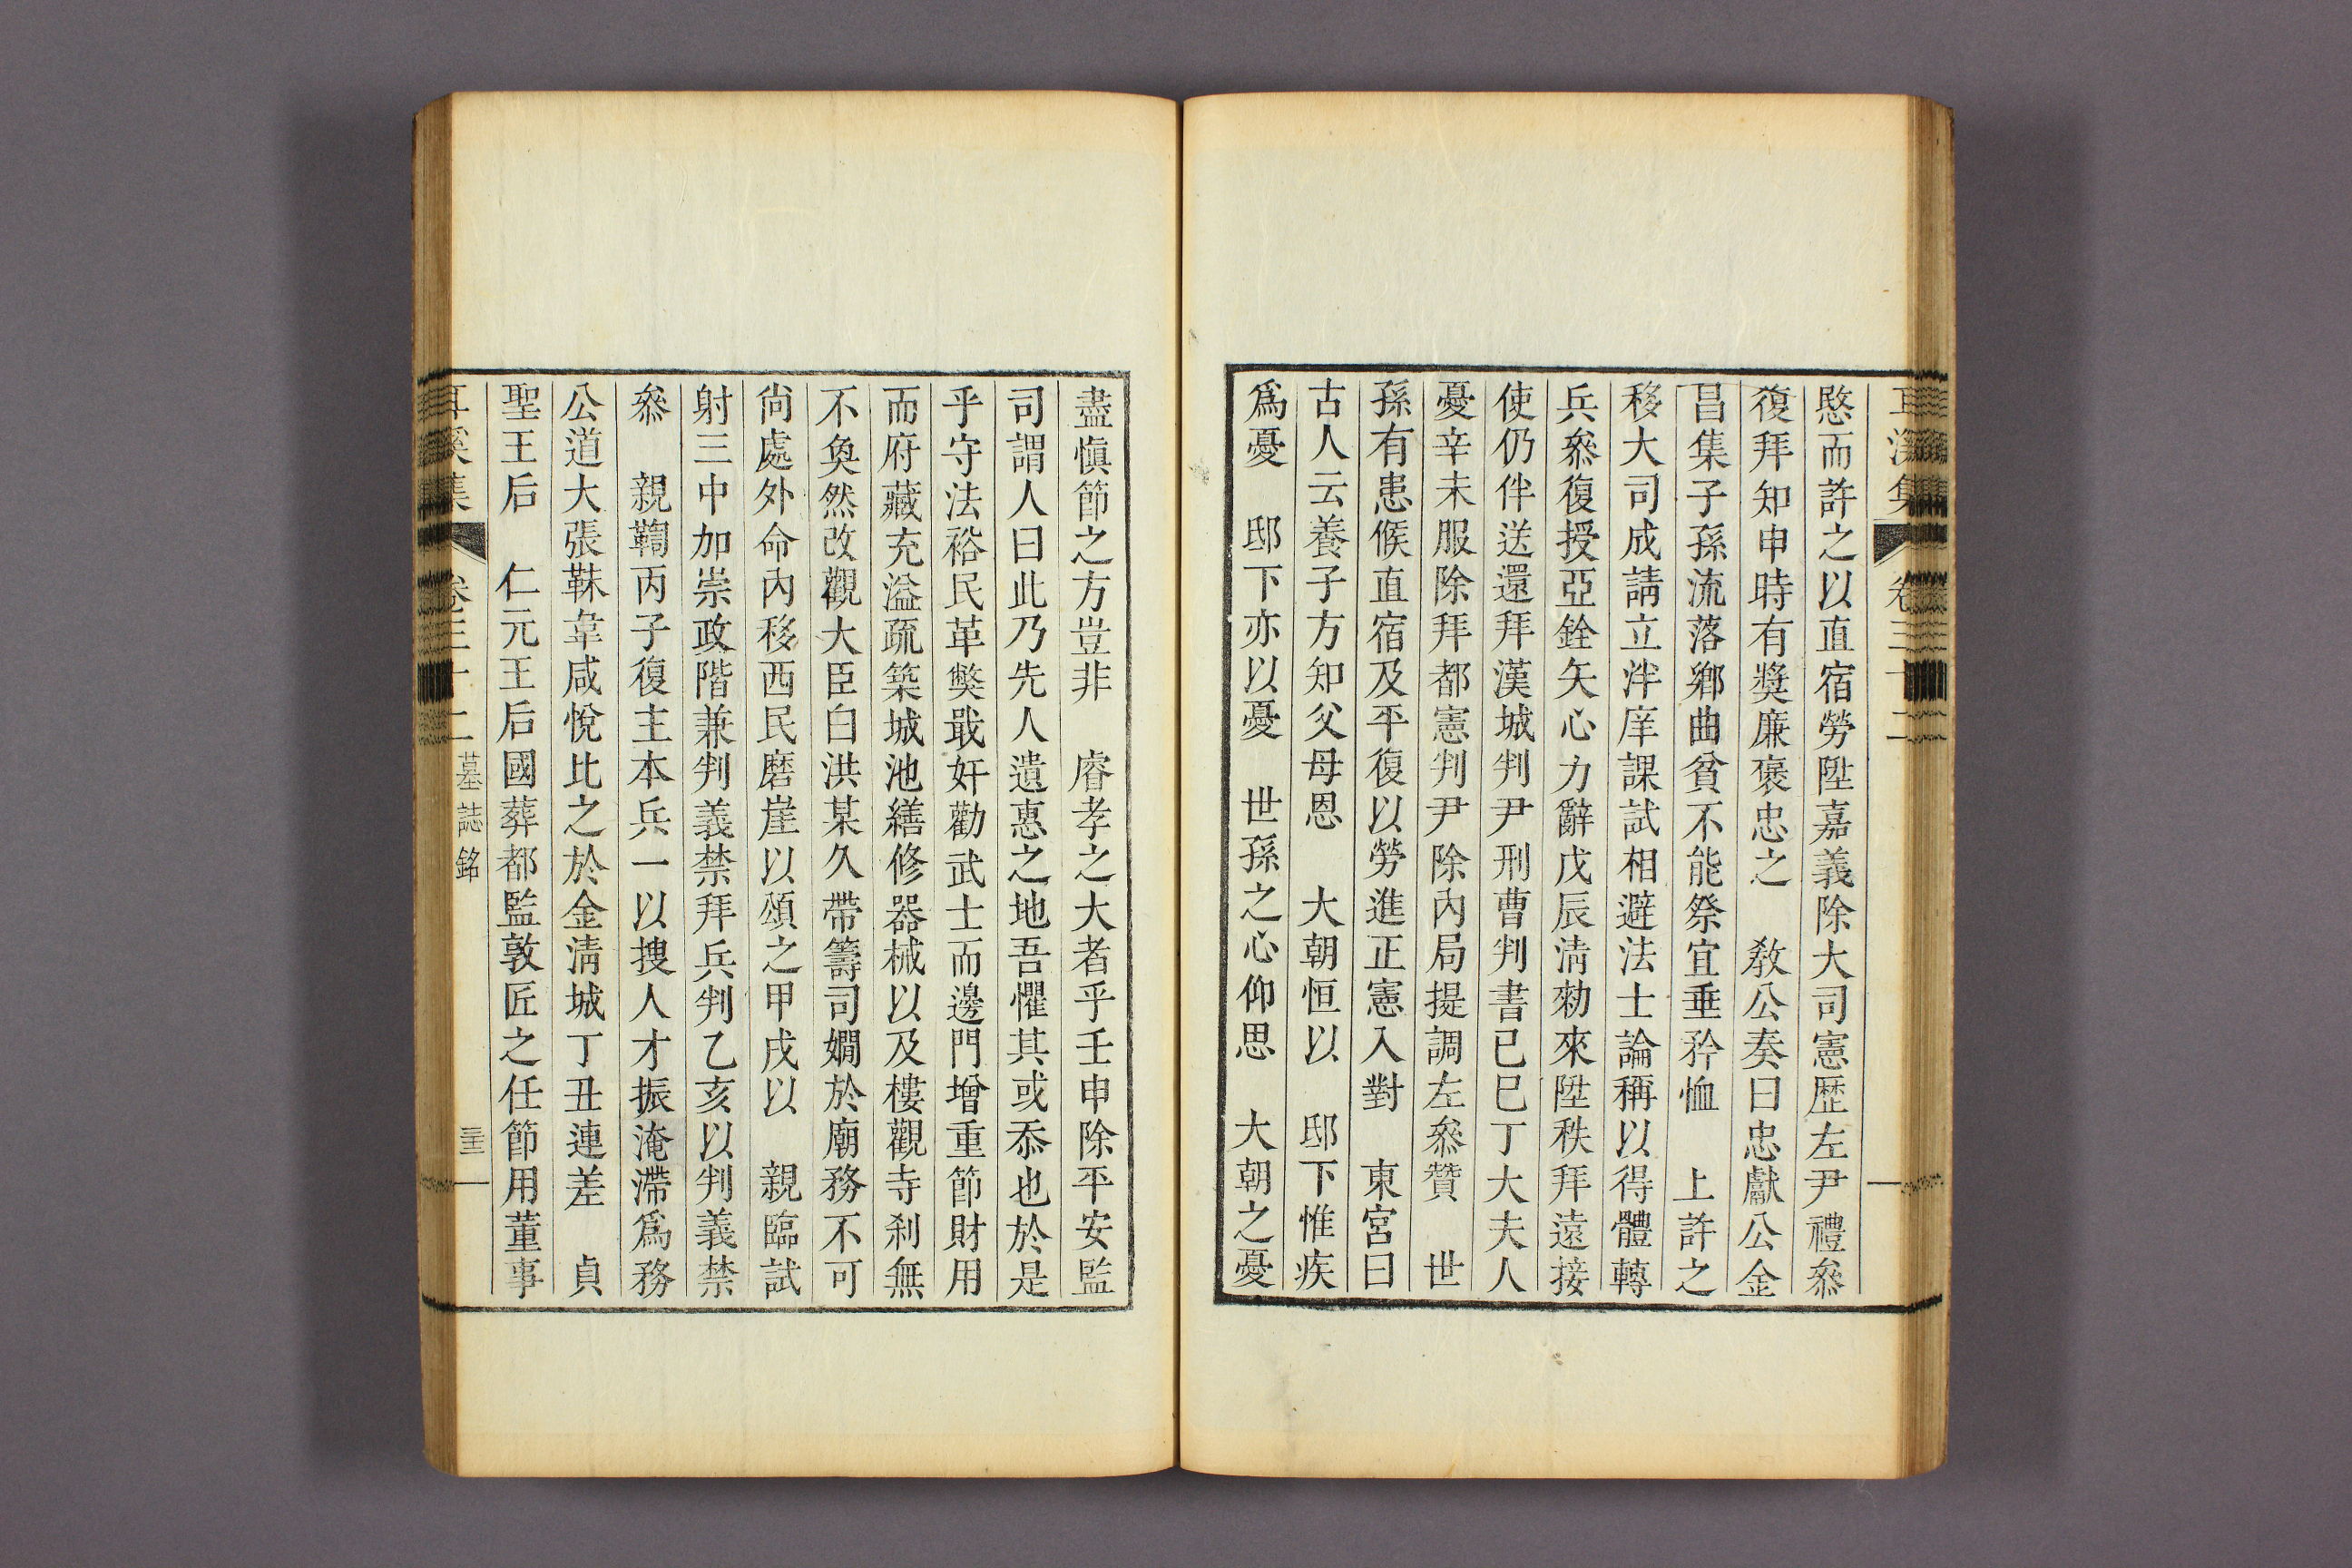 愍而許之以直宿勞陞嘉義除大司憲歷左尹禮叅
復拜知申時有奬廉褒忠之 教公奏曰忠獻公金
昌集子孫流落鄕曲貧不能祭宜垂矜恤 上許之
移大司成請立泮庠課試相避法士論稱以得體轉
兵叅復授亞銓矢心力辭戊辰淸勑來陞秩拜遠接
使仍伴送還拜漢城判尹刑曹判書己巳丁大夫人
憂辛未服除拜都憲判尹除內局提調左叅贊 世
孫有患候直宿及平復以勞進正憲入對 東宮曰
古人云養子方知父母恩 大朝恒以 邸下惟疾
爲憂 邸下亦以憂 世孫之心仰思 大朝之憂
盡愼節之方豈非 睿孝之大者乎壬申除平安監
司謂人曰此乃先人遺惠之地吾懼其或忝也於是
乎守法裕民革弊戢奸勸武士而邊門增重節財用
而府藏充溢疏築城池繕修器械以及樓觀寺刹無
不奐然改觀大臣白洪某久帶籌司嫺於廟務不可
尙處外命內移西民磨崖以頌之甲戌以 親臨試
射三中加崇政階兼判義禁拜兵判乙亥以判義禁
叅 親鞫丙子復主本兵一以搜人才振淹滯爲務
公道大張靺韋咸悅比之於金淸城丁丑連差 貞
聖王后 仁元王后國葬都監敦匠之任節用董事
耳溪集 卷三十二 墓誌銘